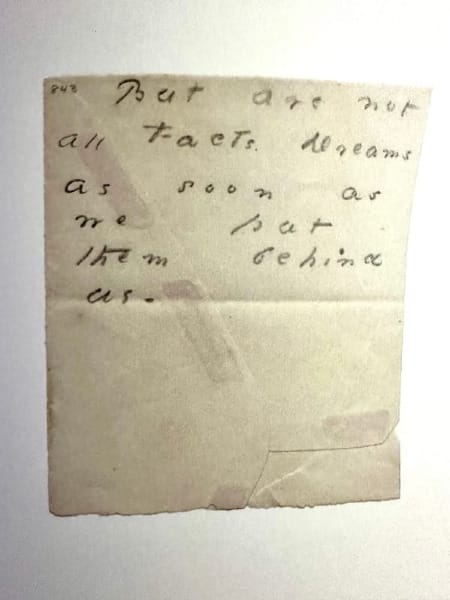 843 But are not
all Facts. Dreams
as soon as
we put
them behind
us -